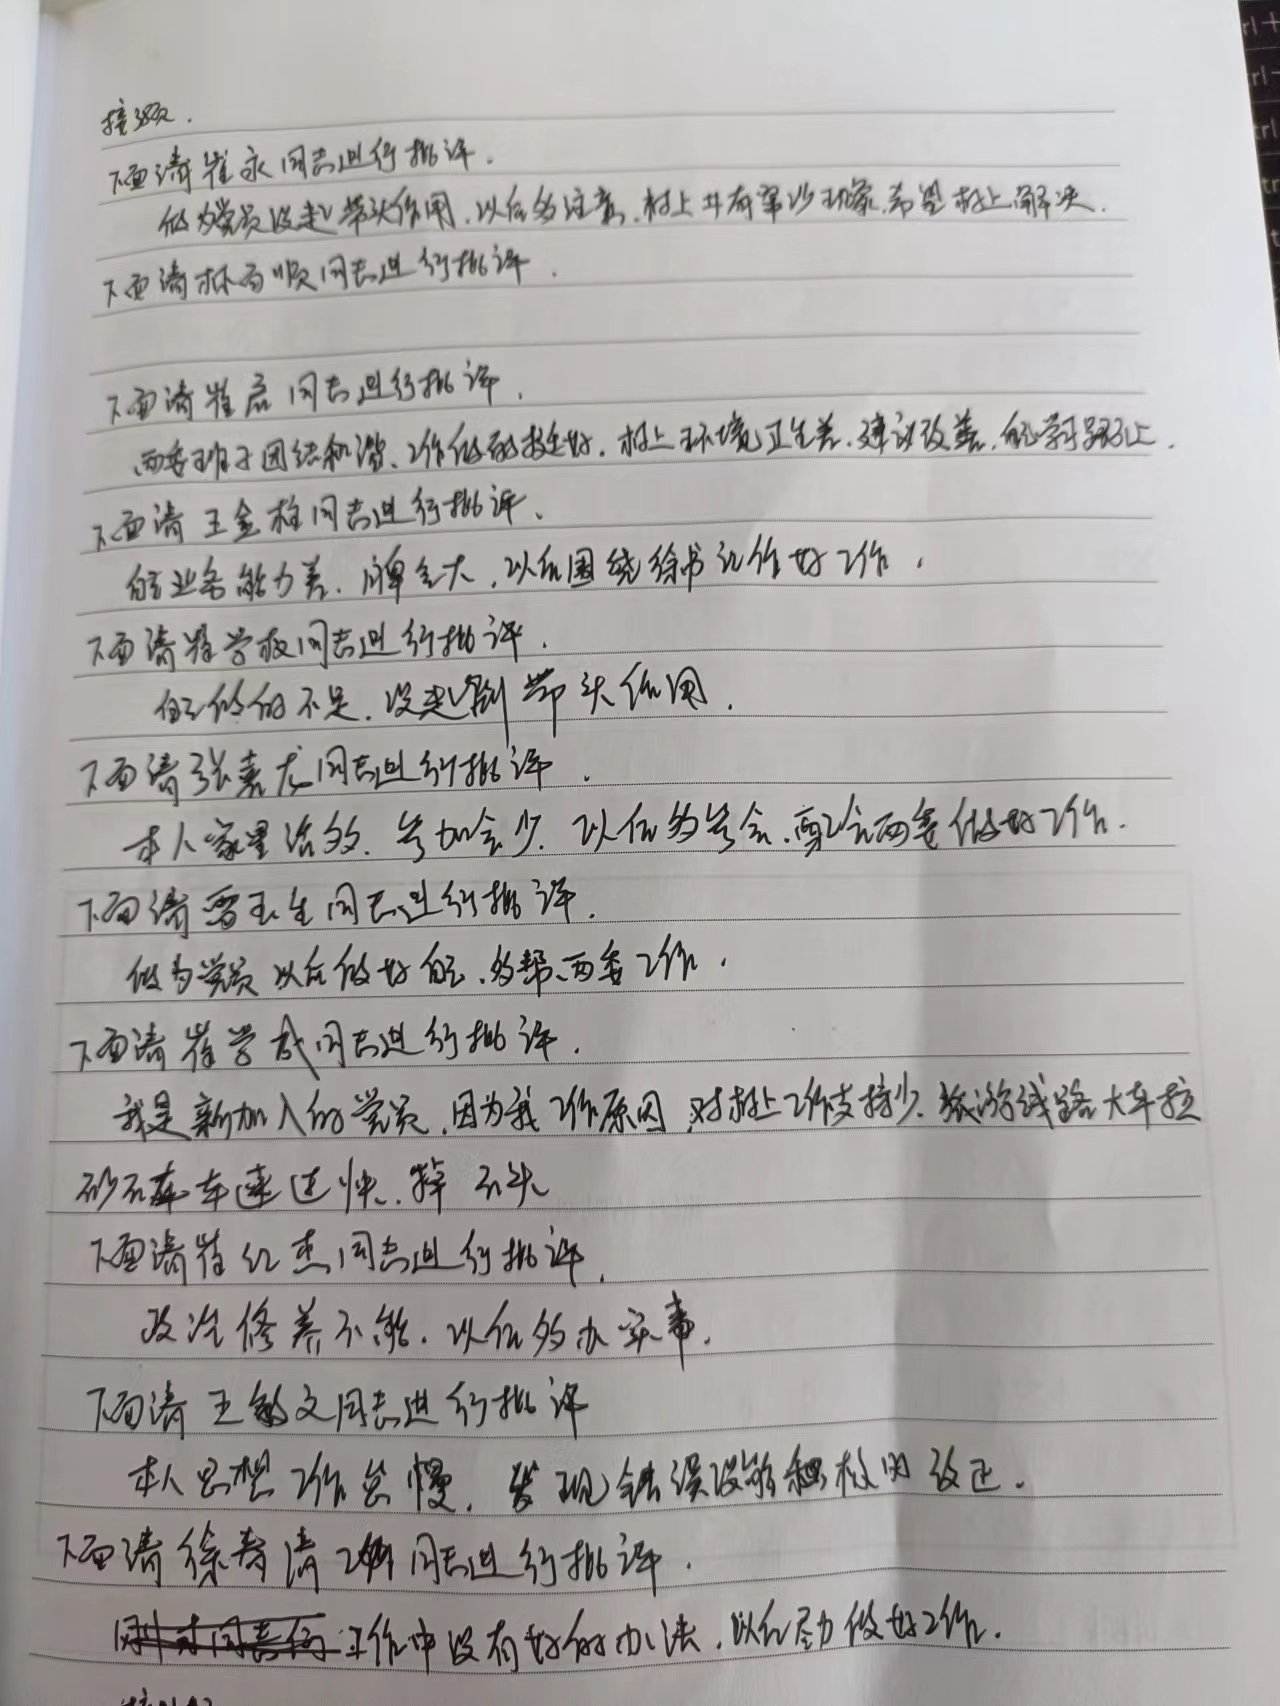 接
下面请崔永同志进行批评.
做为党员没起带头作用.以后多注意.村上有现象.希望村上解决.
下面请林顺同志进行批评.
下面请崔同志进行批评.
两委班子团结和谐、工作做的较好.村上环境卫生差.建议改善.学习跟不上.
下面请王金柱同志进行批评、
自己业务能力差.大,以后围绕徐书记作好工作.
下面请崔学同志进行批评.
自己做的不足.没起到带头作用.
下面请张嘉龙同志进行批评.
本人家里活多.参加会少.以后多参会.配合两委做好工作.
下面请雷玉生同志进行批评.
做为党员以后做好自己、多帮两委工作.
下面请崔学成同志进行批评.
我是新加入的党员.因为我工作原因.对村上工作支持少.旅游线路大车拉
砂石车车速过快.掉石头
下面请崔红杰同志进行批评.
政治修养不能.以后多办实事.
下面请王敏文同志进行批评
本人思想工作怠慢.发现错误没能积极改正.
下面请徐春清同志进行批评.
工作中没有好的办法.以后尽力做好工作.